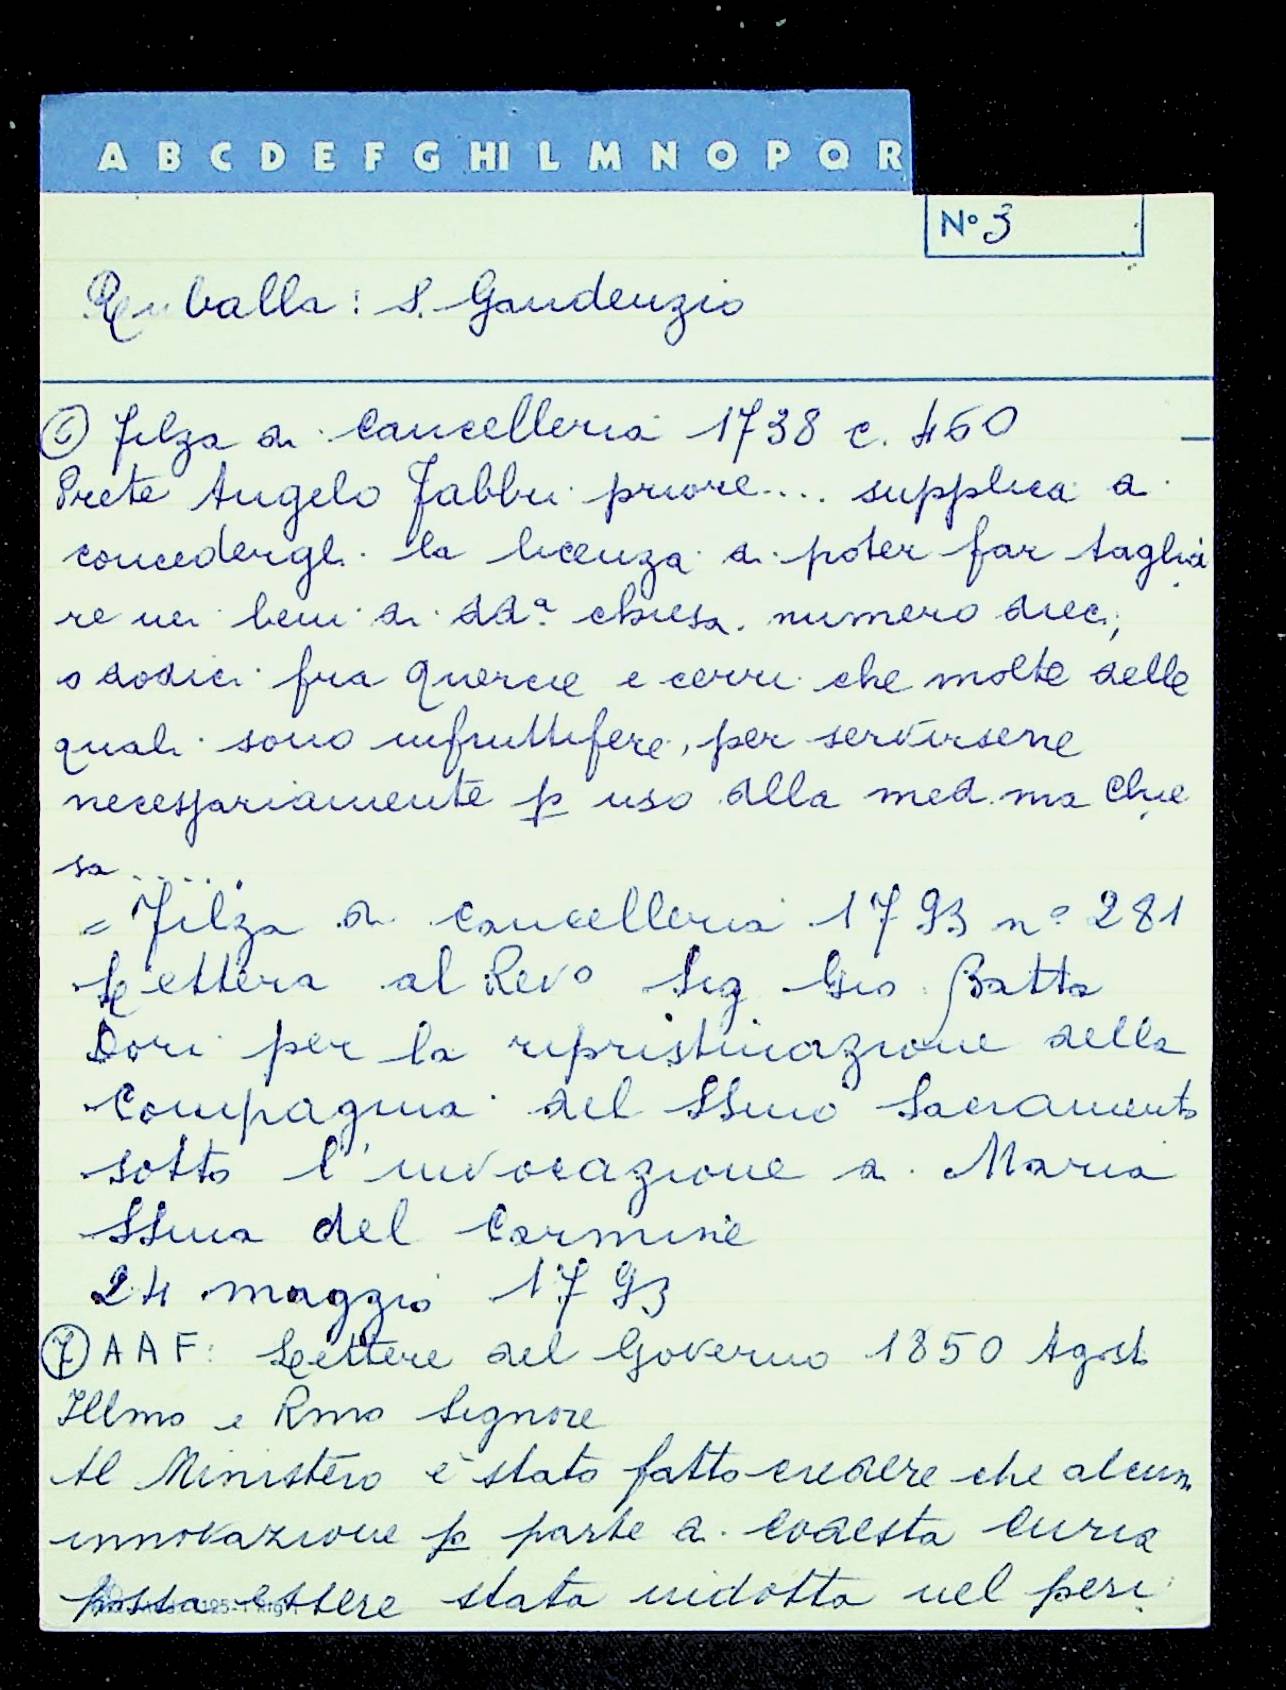 A B C D E F G HI L M N O P Q R
N° 3
Ruballa: S. Gaudenzio
⑥ Filza di Cancelleria 1738 c. 460
Prete Angelo Fabbri priore.... supplica a
concedergli la licenza di poter far taglia
re nei beni di dda chiesa numero dieci,
o dodici fra Quercie e cerri che molte delle
quali sono infruttifere, per servirsene
necessariamente p uso della med.ma Chie
sa......
= Filza di Cancelleria 1793 n° 281
Lettera al Revo Sig Gio Batta
Dori per la ripristinazione della
Compagnia del SSmo Sacramento
sotto l'invocazione di Maria
SSma del Carmine
24 maggio 1793
⑦ AAF: Lettere del Governo 1850 Agosto
Illmo e Rmo Signore
Al Ministero è stato fatto credere che alcuna
innovazione p parte di codesta Curia
possa essere stata indotta nel peri